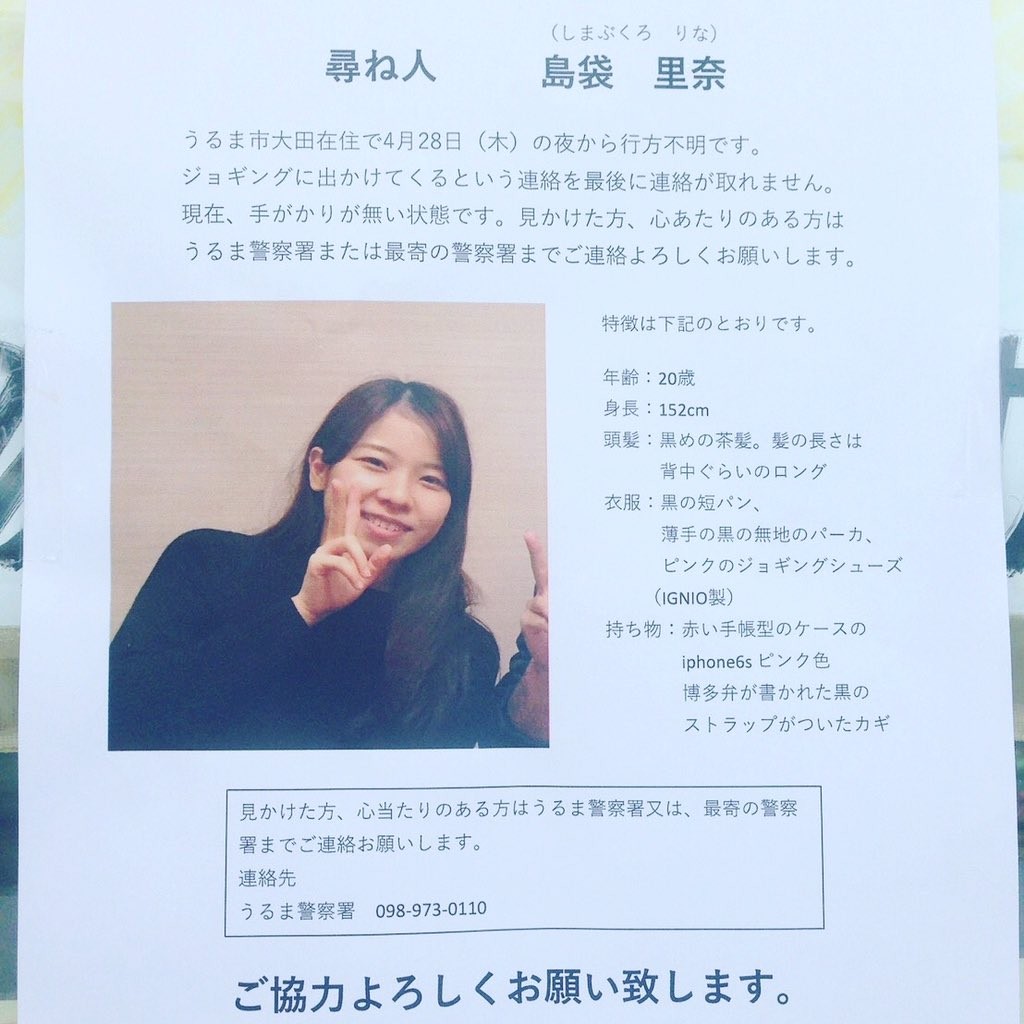 （しまぶくろ　りな）
尋ね人　島袋　里奈
うるま市大田在住で4月28日（木）の夜から行方不明です。
ジョギングに出かけてくるという連絡を最後に連絡が取れません。
現在、手がかりが無い状態です。見かけた方、心あたりのある方は
うるま警察署または最寄の警察署までご連絡よろしくお願いします。
特徴は下記のとおりです。
年齢：20歳
身長：152cm
頭髪：黒めの茶髪。髪の長さは
背中ぐらいのロング
衣服：黒の短パン、
薄手の黒の無地のパーカ、
ピンクのジョギングシューズ
（IGNIO製）
持ち物：赤い手帳型のケースの
iphone6s ピンク色
博多弁が書かれた黒の
ストラップがついたカギ
見かけた方、心当たりのある方はうるま警察署又は、最寄の警察
署までご連絡お願いします。
連絡先
うるま警察署　098-973-0110
ご協力よろしくお願い致します。